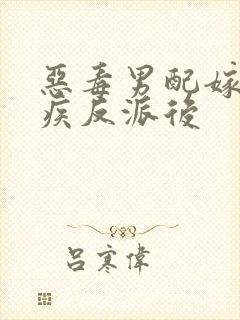 惡毒男配嫁
疾反派後
呂寒偉